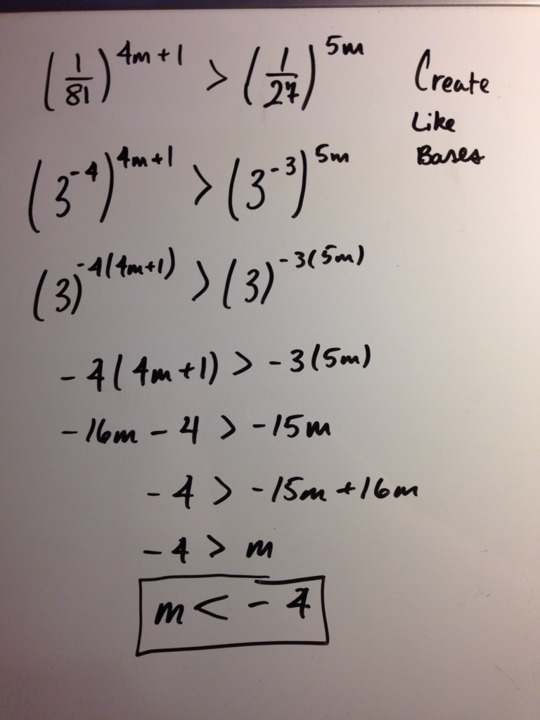 (1/81)^(4m+1) > (1/27)^(5m)
Create
Like
Bases
(3^-4)^(4m+1) > (3^-3)^(5m)
(3)^(-4(4m+1)) > (3)^(-3(5m))
-4(4m+1) > -3(5m)
-16m - 4 > -15m
-4 > -15m + 16m
-4 > m
m < -4